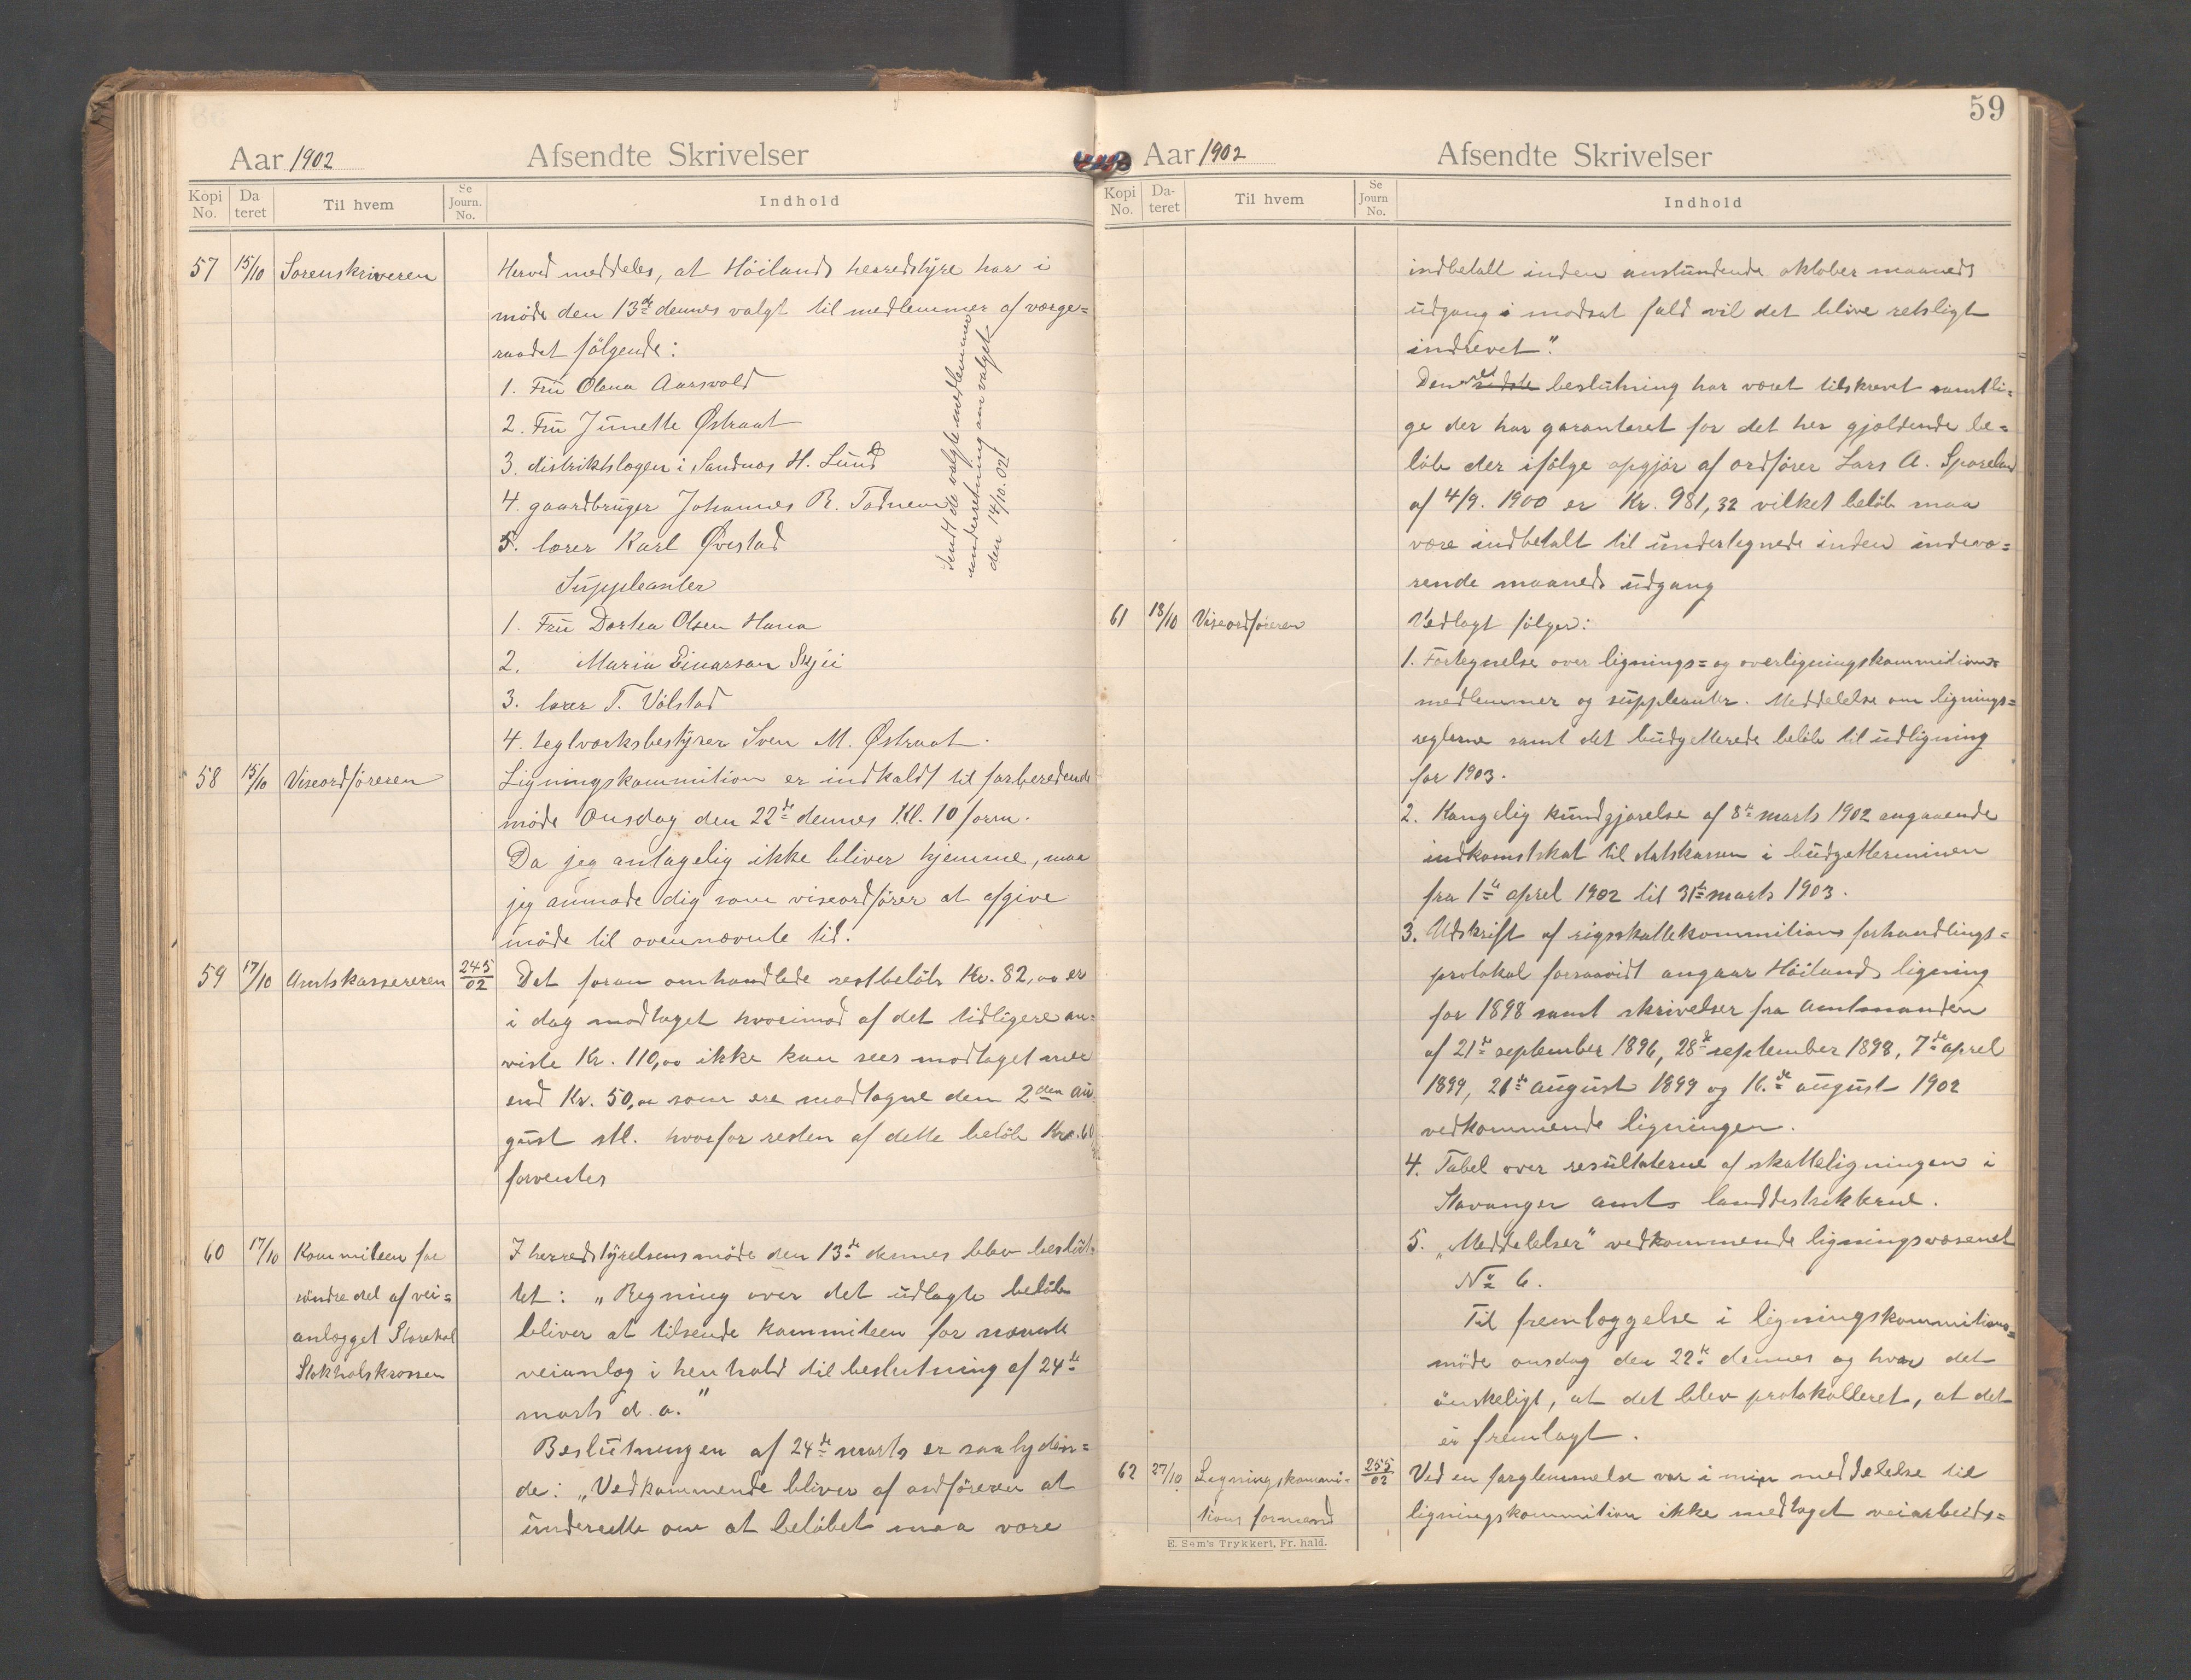 Aar 1902 Afsendte Skrivelser
Kopi No. Da teret Til hvem Se Journ. No. Indhold
57 15/10 Sorenskriveren Herved meddeles, at Höilands herredstyre har i
möde den 13de dennes valgt til medlemmer af værge=
raadet fölgende:
1. Fru Olena Aarsvold
2. Fru Junette Østraat
3. distriktslægen i Sandnæs H. Lund
4. gaardbruger Johannes R. Todnem
5. lærer Karl Øvestad
Suppleanter
1. Fru Dortea Olsen Hana
2. Maria Einarsan
3. lærer T. Völstad
4. teglværksbestyrer Sven M. Østraat.
Sendt de valgte medlemmer
underretning om valget
den 14/10. 02
58 15/10 Viseordföreren Ligningskommition er indkaldt til forberedende
möde Onsdag den 22de dennes Kl. 10 form.
Da jeg antagelig ikke bliver hjemme, maa
jeg anmode dig som viseordförer at afgive
möde til ovennævnte tid.
59 17/10 Amtskassereren 245/02 Det foran omhandlede restbelöb Kr. 82,00 er
i dag modtaget hvorimod af det tidligere an=
viste Kr. 110,00 ikke kan sees modtaget mer
end Kr. 50,00 som ere modtagne den 2den au
gust stl. hvorfor resten af dette belöb Kr. 60
forventes
60 17/10 Kommiteen for I herredstyrelsens möde den 13de dennes blev beslut=
söndre del af vei= tet: „Regning over det udlagte belöb
anlægget Storehol bliver at tilsende Kommiteen for nævnte
Stokholskrossen veianlæg i henhold til beslutning af 24de
marts d. a."
Beslutningen af 24de marts er saa lyden=
de: „Vedkommende bliver af ordföreren at
underrette om at belöbet maa være
59
Aar 1902 Afsendte Skrivelser
Kopi No. Da- teret Til hvem Se Journ No. Indhold
indbetalt inden anstundende oktober maaneds
udgang i modsat fald vil det blive retsligt
indrevet".
Den sidste beslutning har været tilskrevet samtli=
ge der har garanteret for det her gjældende be=
löb der ifölge opgjör af ordförer Lars A. Spareland
af 4/9. 1900 er Kr. 981,32 vilket belöb maa
være indbetalt til undertegnede inden indevæ=
rende maaneds udgang
61 18/10 Viseordföreren Vedlagt fölger:
1. Fortegnelse over lignings= og overligningskommitions=
medlemmer og suppleanter. Meddelelse om lignings=
reglerne samt det budgetterede belöb til udligning
for 1903.
2. Kongelig kundgjörelse af 8de marts 1902 angaaende
indkomstskat til statskassen i budgetterminen
fra 1ste aprel 1902 til 31te marts 1903.
3. Udskrift af rigsskattekommitions forhandlings=
protokol forsaavidt angaar Höilands ligning
for 1898 samt skrivelser fra Amtmanden
af 21de september 1896, 28de september 1898, 7de aprel
1899, 26de august 1899 og 16.de august 1902
vedkommende ligningen.
4. Tabel over resultaterne af skatteligningen i
Stavanger amts landdistrikterne.
5. „Meddelelser" vedkommende ligningsvæsenet
No 6.
Til fremlæggelse i ligningskommitions=
möde onsdag den 22de dennes og hvor det
önskeligt, at det blev protokolleret, at det
er fremlagt.
62 27/10 Ligningskommi= 255/02 Ved en forglemmelse var i min meddelelse til
tions formand ligningskommition ikke medtaget veiarbeids=
E. Sem's Trykkeri, Fr. hald.